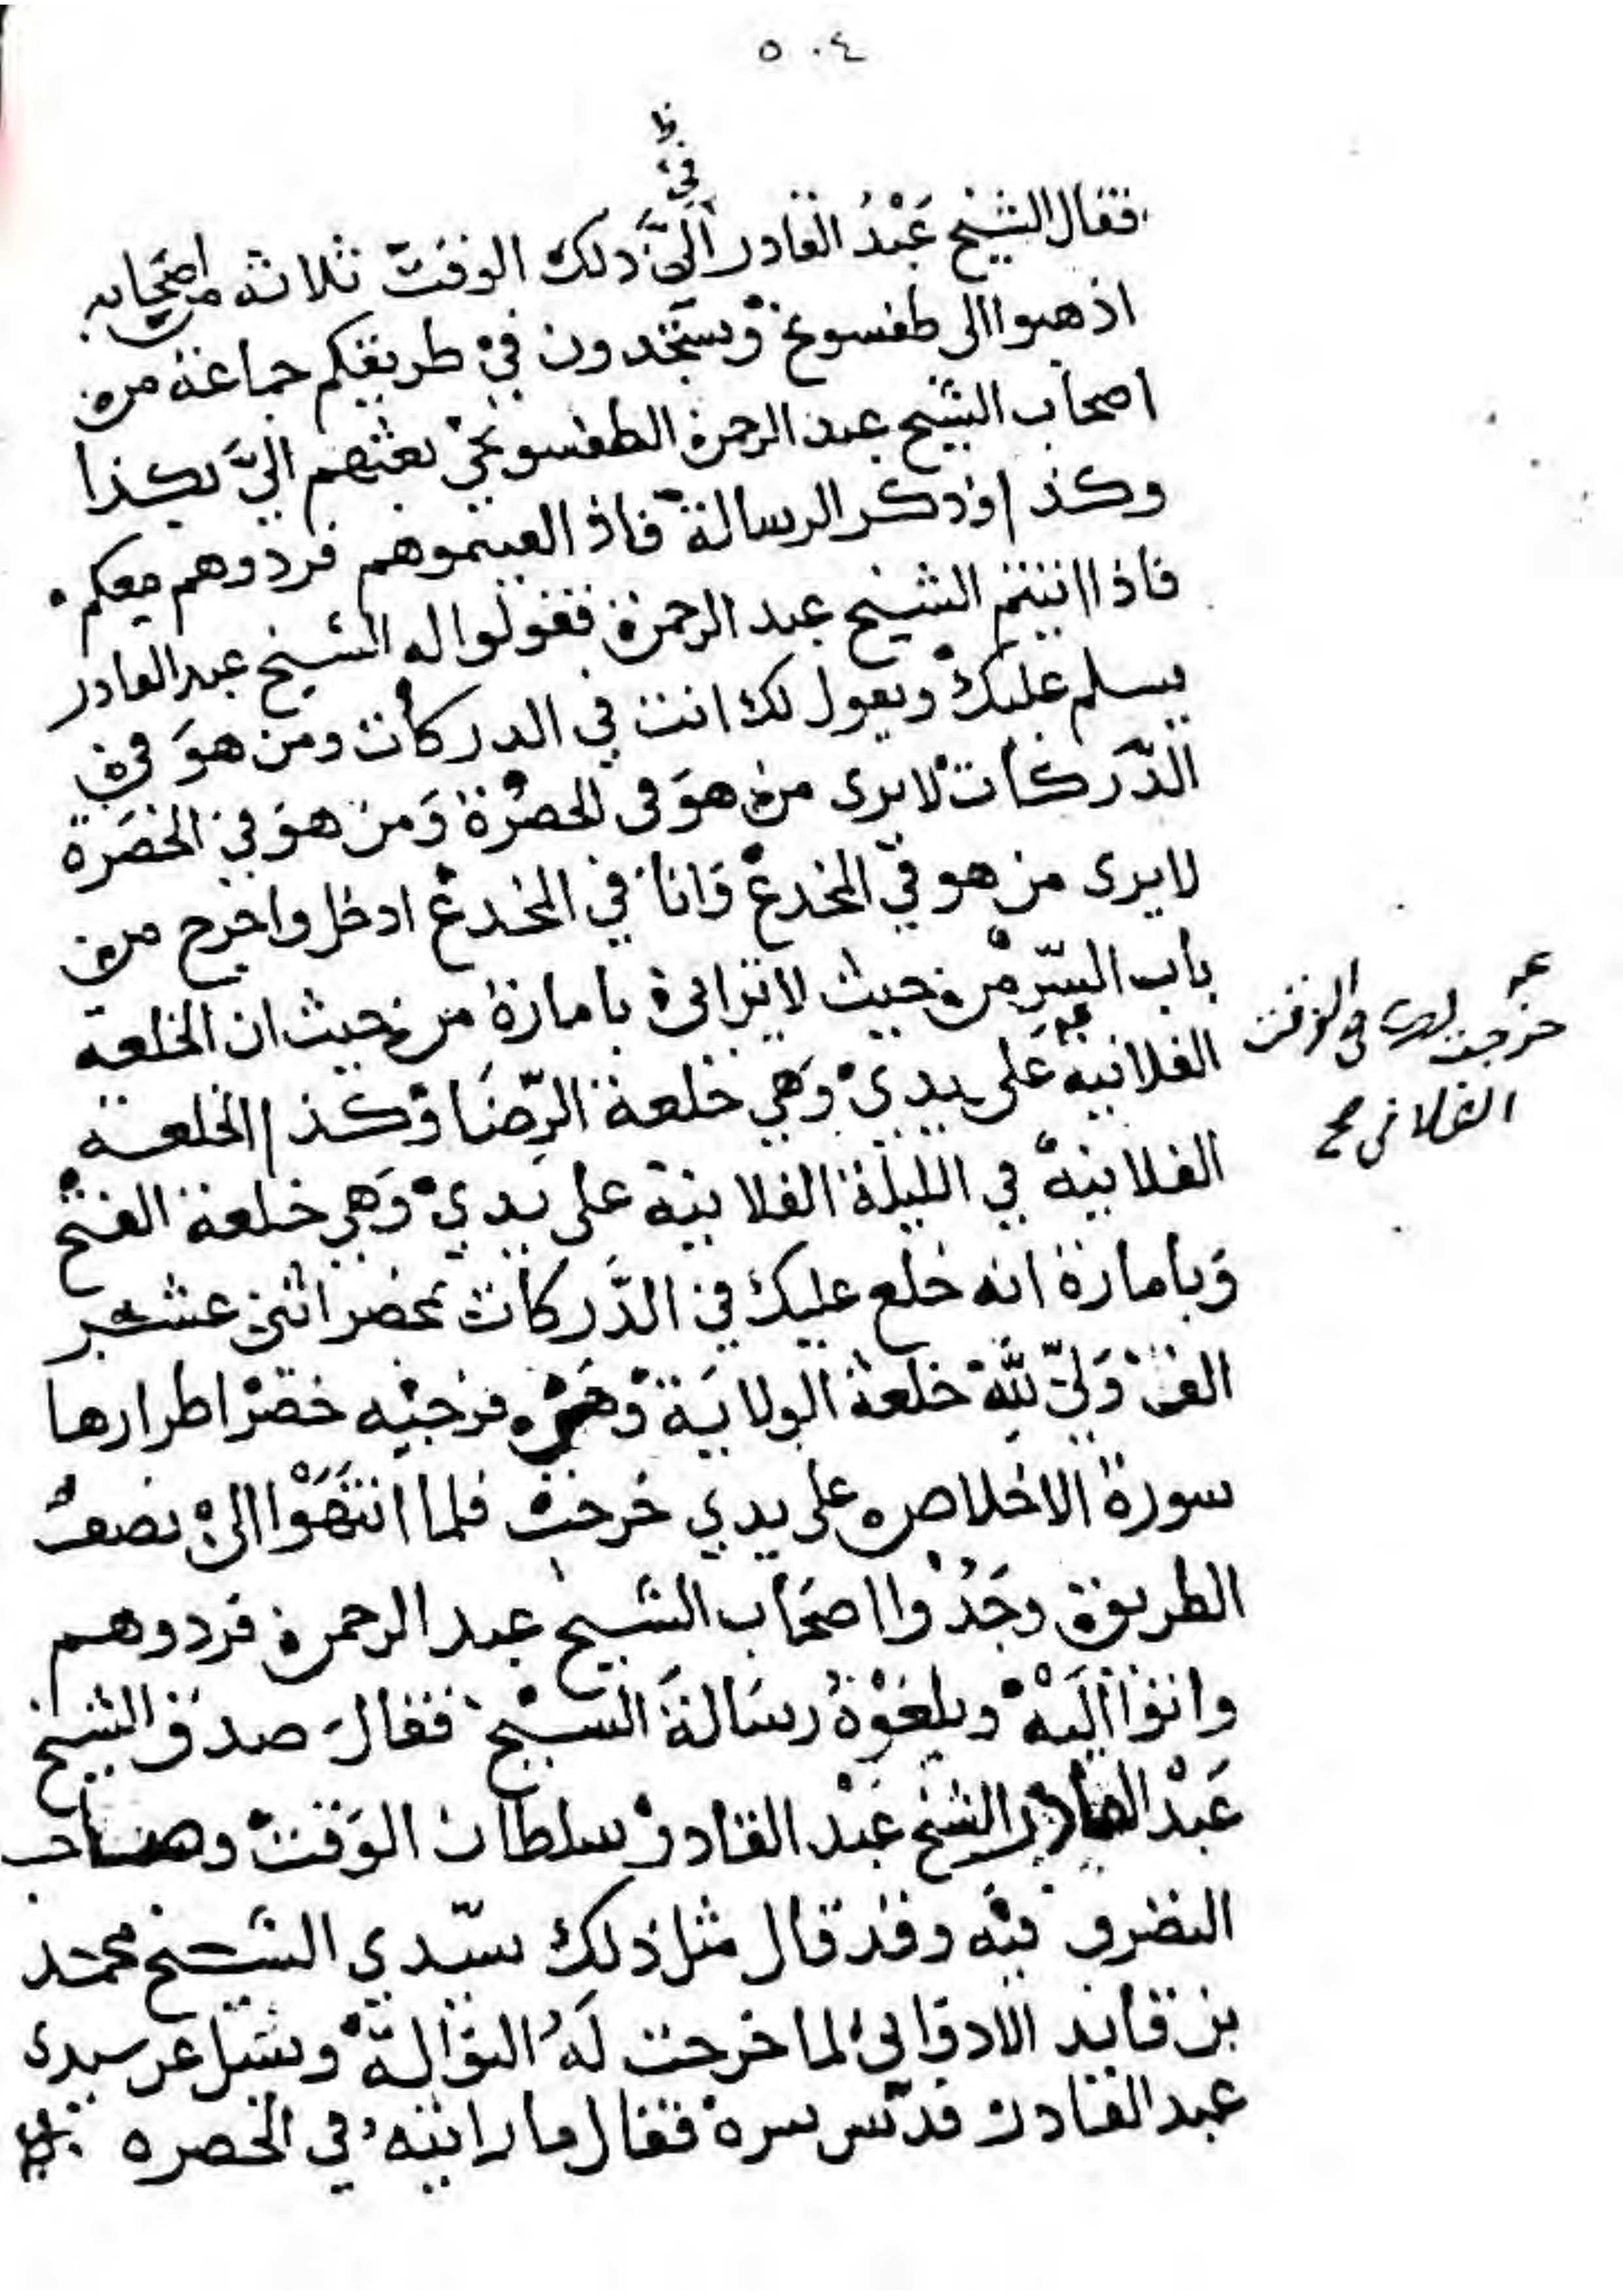 ٥٠٤
ظ
في
فقال الشيخ عَبْدُ القادر الىَّ ذلك الوقت ثلاثه من اصحابه
اذهبوا الى طفسونج وستجدون في طريقكم جماعة من
اصحاب الشيخ عبد الرحمن الطفسونجي بعثهم اليَّ بكذا
وكذا وذكر الرسالة فاذ القيتموهم فردوهم معكم
فاذا اتيتم الشيخ عبد الرحمن فقولوا له الشيخ عبد القادر
يسلم عليك ويقول لك انت في الدركات ومن هوَ في
الدَّركات لا يرى من هوَ في الحضرة وَمن هوَ في الحضَرة
لا يرى من هو في المخدع وَانا في المخدع ادخل واخرج من
باب السّر من حيث لا تراني بامارة من حيث ان الخلعة
الفلانية عَلى يدي وَهي خلعة الرّضَا وكذا الخلعة
الفلانية في الليلة الفلانية على يَدي وَهي خلعة الفتح
وَبامارة انه خلع عليك في الدَّركات بمحضر اثنى عشر
الف وَليّ للّه خلعة الولايَة وَهي فرجيه خضرَا طرارها
سورة الاخلاص على يدي خرجت فلما انتهَوْا الى نصف
الطريق وجَدُوا اصحَاب الشيخ عبد الرحمن فردوهم
واتوا اليَه وبلغوْهُ رسَالةَ الشيخ فقالَ صدق الشيخ
عَبْد القادر الشيخ عَبْد القادر سلطان الوَقت وصاحب
التصرف فيه وقد قال مثل ذلك سيّدي الشيخ محمد
بن قايد الاواني لما خرجت لَهُ النوَالة وسئل عن سيدى
عبد القادر قدّس سره فقال ما رايته في الحضره
خرجت له في الوقت
الفلاني صح